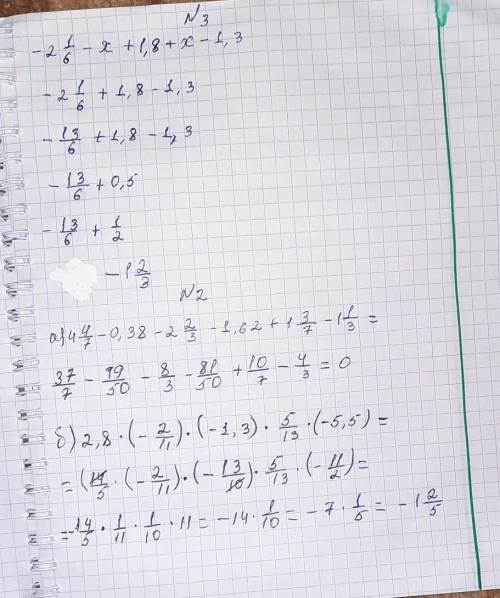 №3
-2 1/6 - x + 1,8 + x - 1,3
-2 1/6 + 1,8 - 1,3
-13/6 + 1,8 - 1,3
-13/6 + 0,5
-13/6 + 1/2
-1 2/3
№2
а) 4 4/7 - 0,38 - 2 2/3 - 1,62 + 1 3/7 - 1 1/3 =
37/7 - 99/50 - 8/3 - 81/50 + 10/7 - 4/3 = 0
б) 2,8 · (-2/11) · (-1,3) · 5/13 · (-5,5) =
= (14/5 · (-2/11) · (-13/10) · 5/13 · (-11/2) =
= -14/5 · 1/11 · 1/10 · 11 = -14 · 1/10 = -7 · 1/5 = -1 2/5